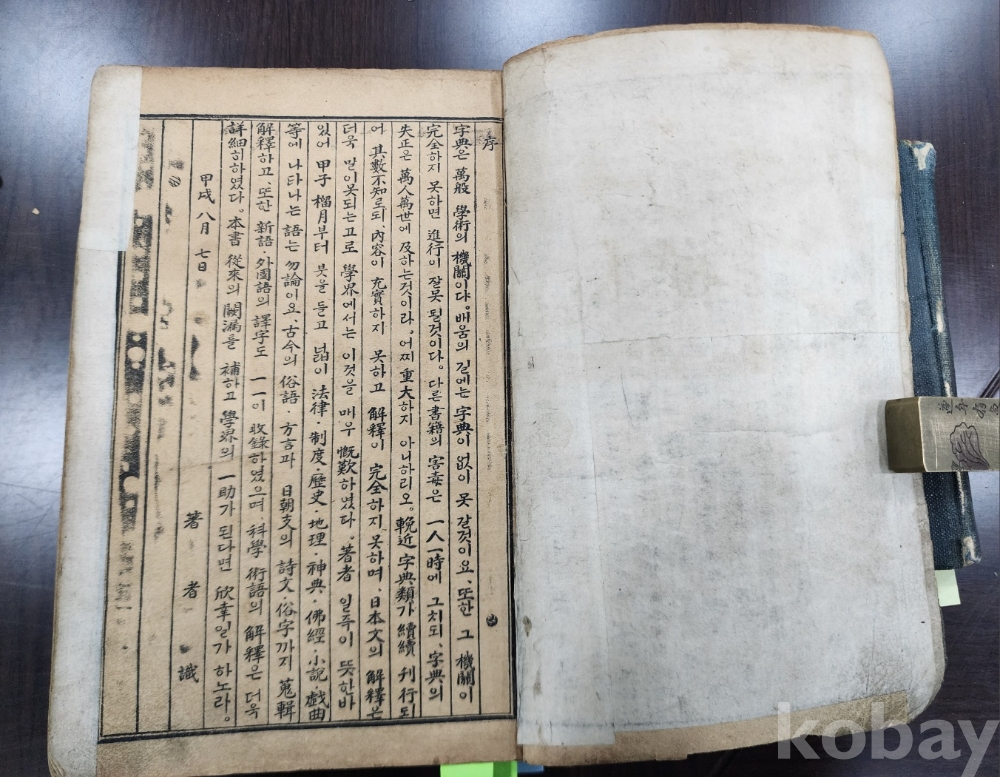 序
字典은 萬般 學術의 機關이다. 배움의 길에는 字典이 없이 못 갈것이요, 또한 그 機關이
完全하지 못하면 進行이 잘못 될것이다. 다른 書籍의 害毒은 一人一時에 그치되, 字典의
失正은 萬人萬世에 及하는것이라. 어찌 重大하지 아니하리오. 輓近 字典類가 續續 刊行되
어 其數不知로되, 內容이 充實하지 못하고 解釋이 完全하지 못하며, 日本文의 解釋은
더욱 말이못되는고로 學界에서는 이것을 매우 慨歎하였다. 著者 일즉이 뜻한바
있어 甲子 榴月부터 붓을 들고 넓이 法律·制度·歷史·地理·神典·佛經·小說 戱曲
等에 나타나는 語는 勿論이요, 古今의 俗語·方言과 日朝支의 詩文·俗字까지 蒐輯
解釋하고, 또한 新語·外國語의 譯字도 一一이 收錄하였으며 科學 術語의 解釋은 더욱
詳細히하였다. 本書 從來의 闕漏를 補하고 學界의 一助가 된다면 欣幸일가 하노라.
甲戌 八月 七日
著者 識
kobay